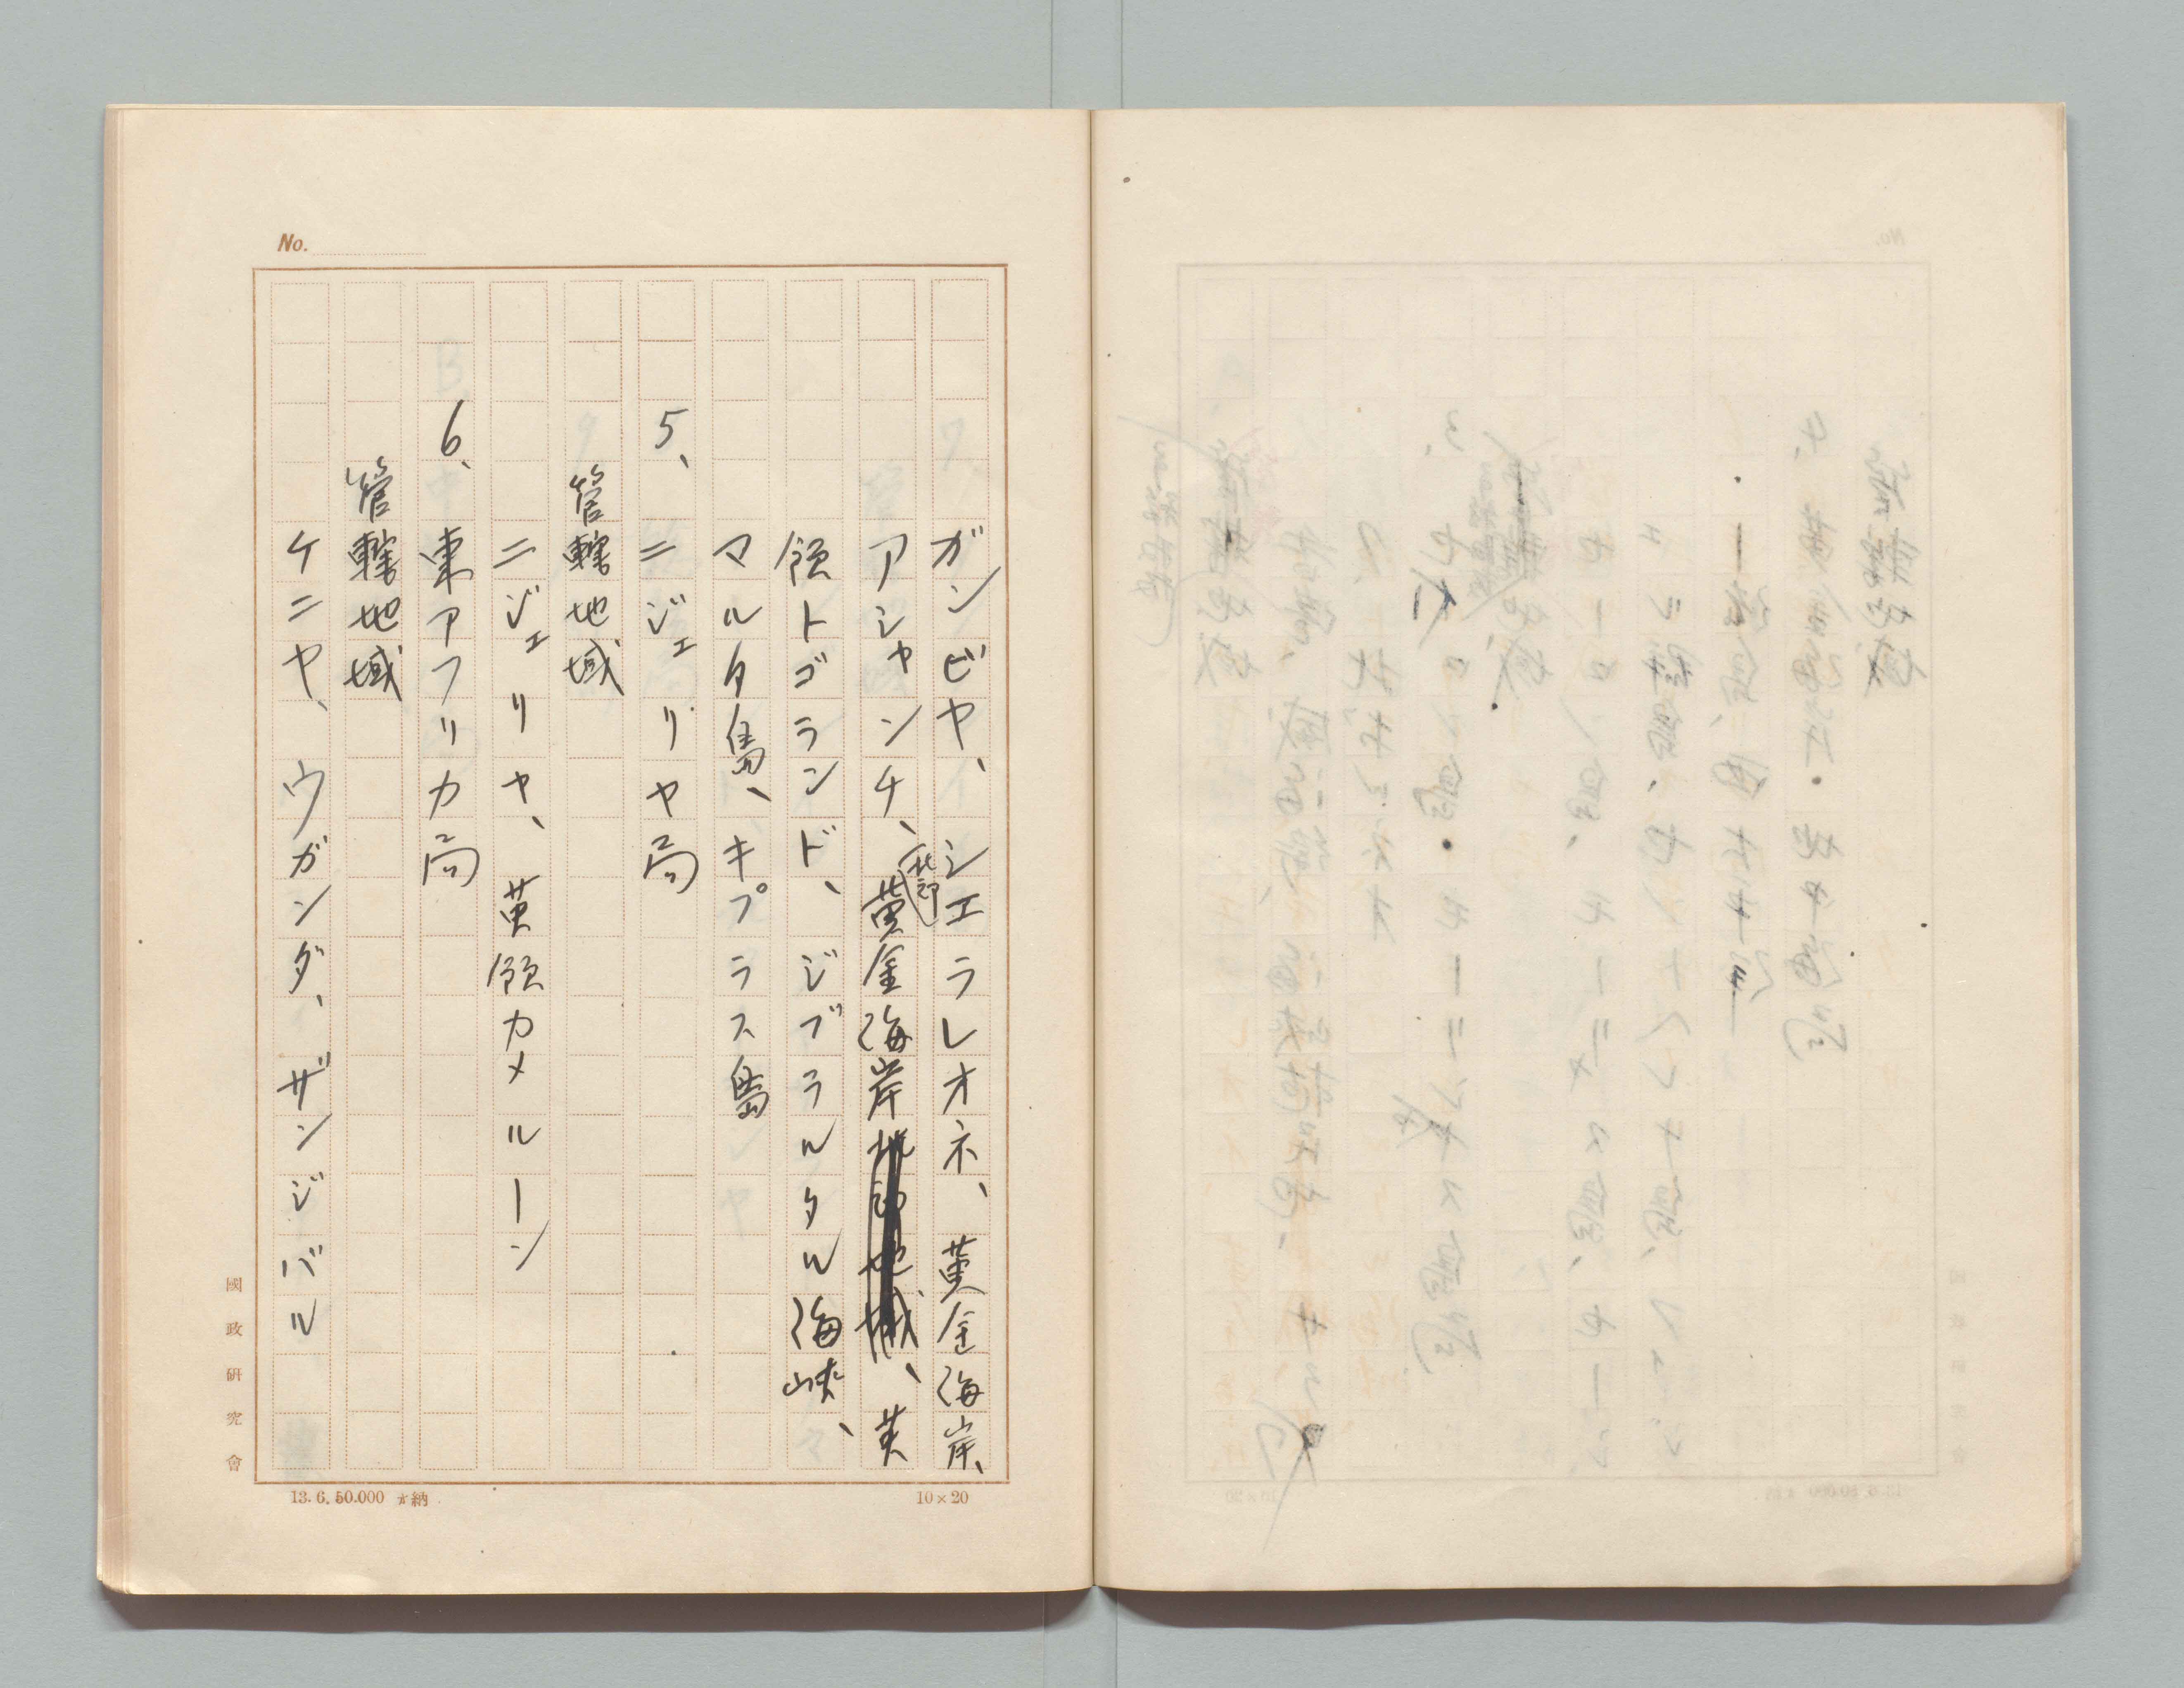 No.
ガンビヤ、シエラレオネ、黄金海岸、
アシャンチ、北部黄金海岸、英
領トゴランド、ジブラルタル海峡、
マルタ島、キプラス島
5、ニジェリヤ局
管轄地域
ニジェリヤ、英領カメルーン
6、東アフリカ局
管轄地域
ケニヤ、ウガンダ、ザンジバル
國政研究會
13.6.50.000 納
10×20